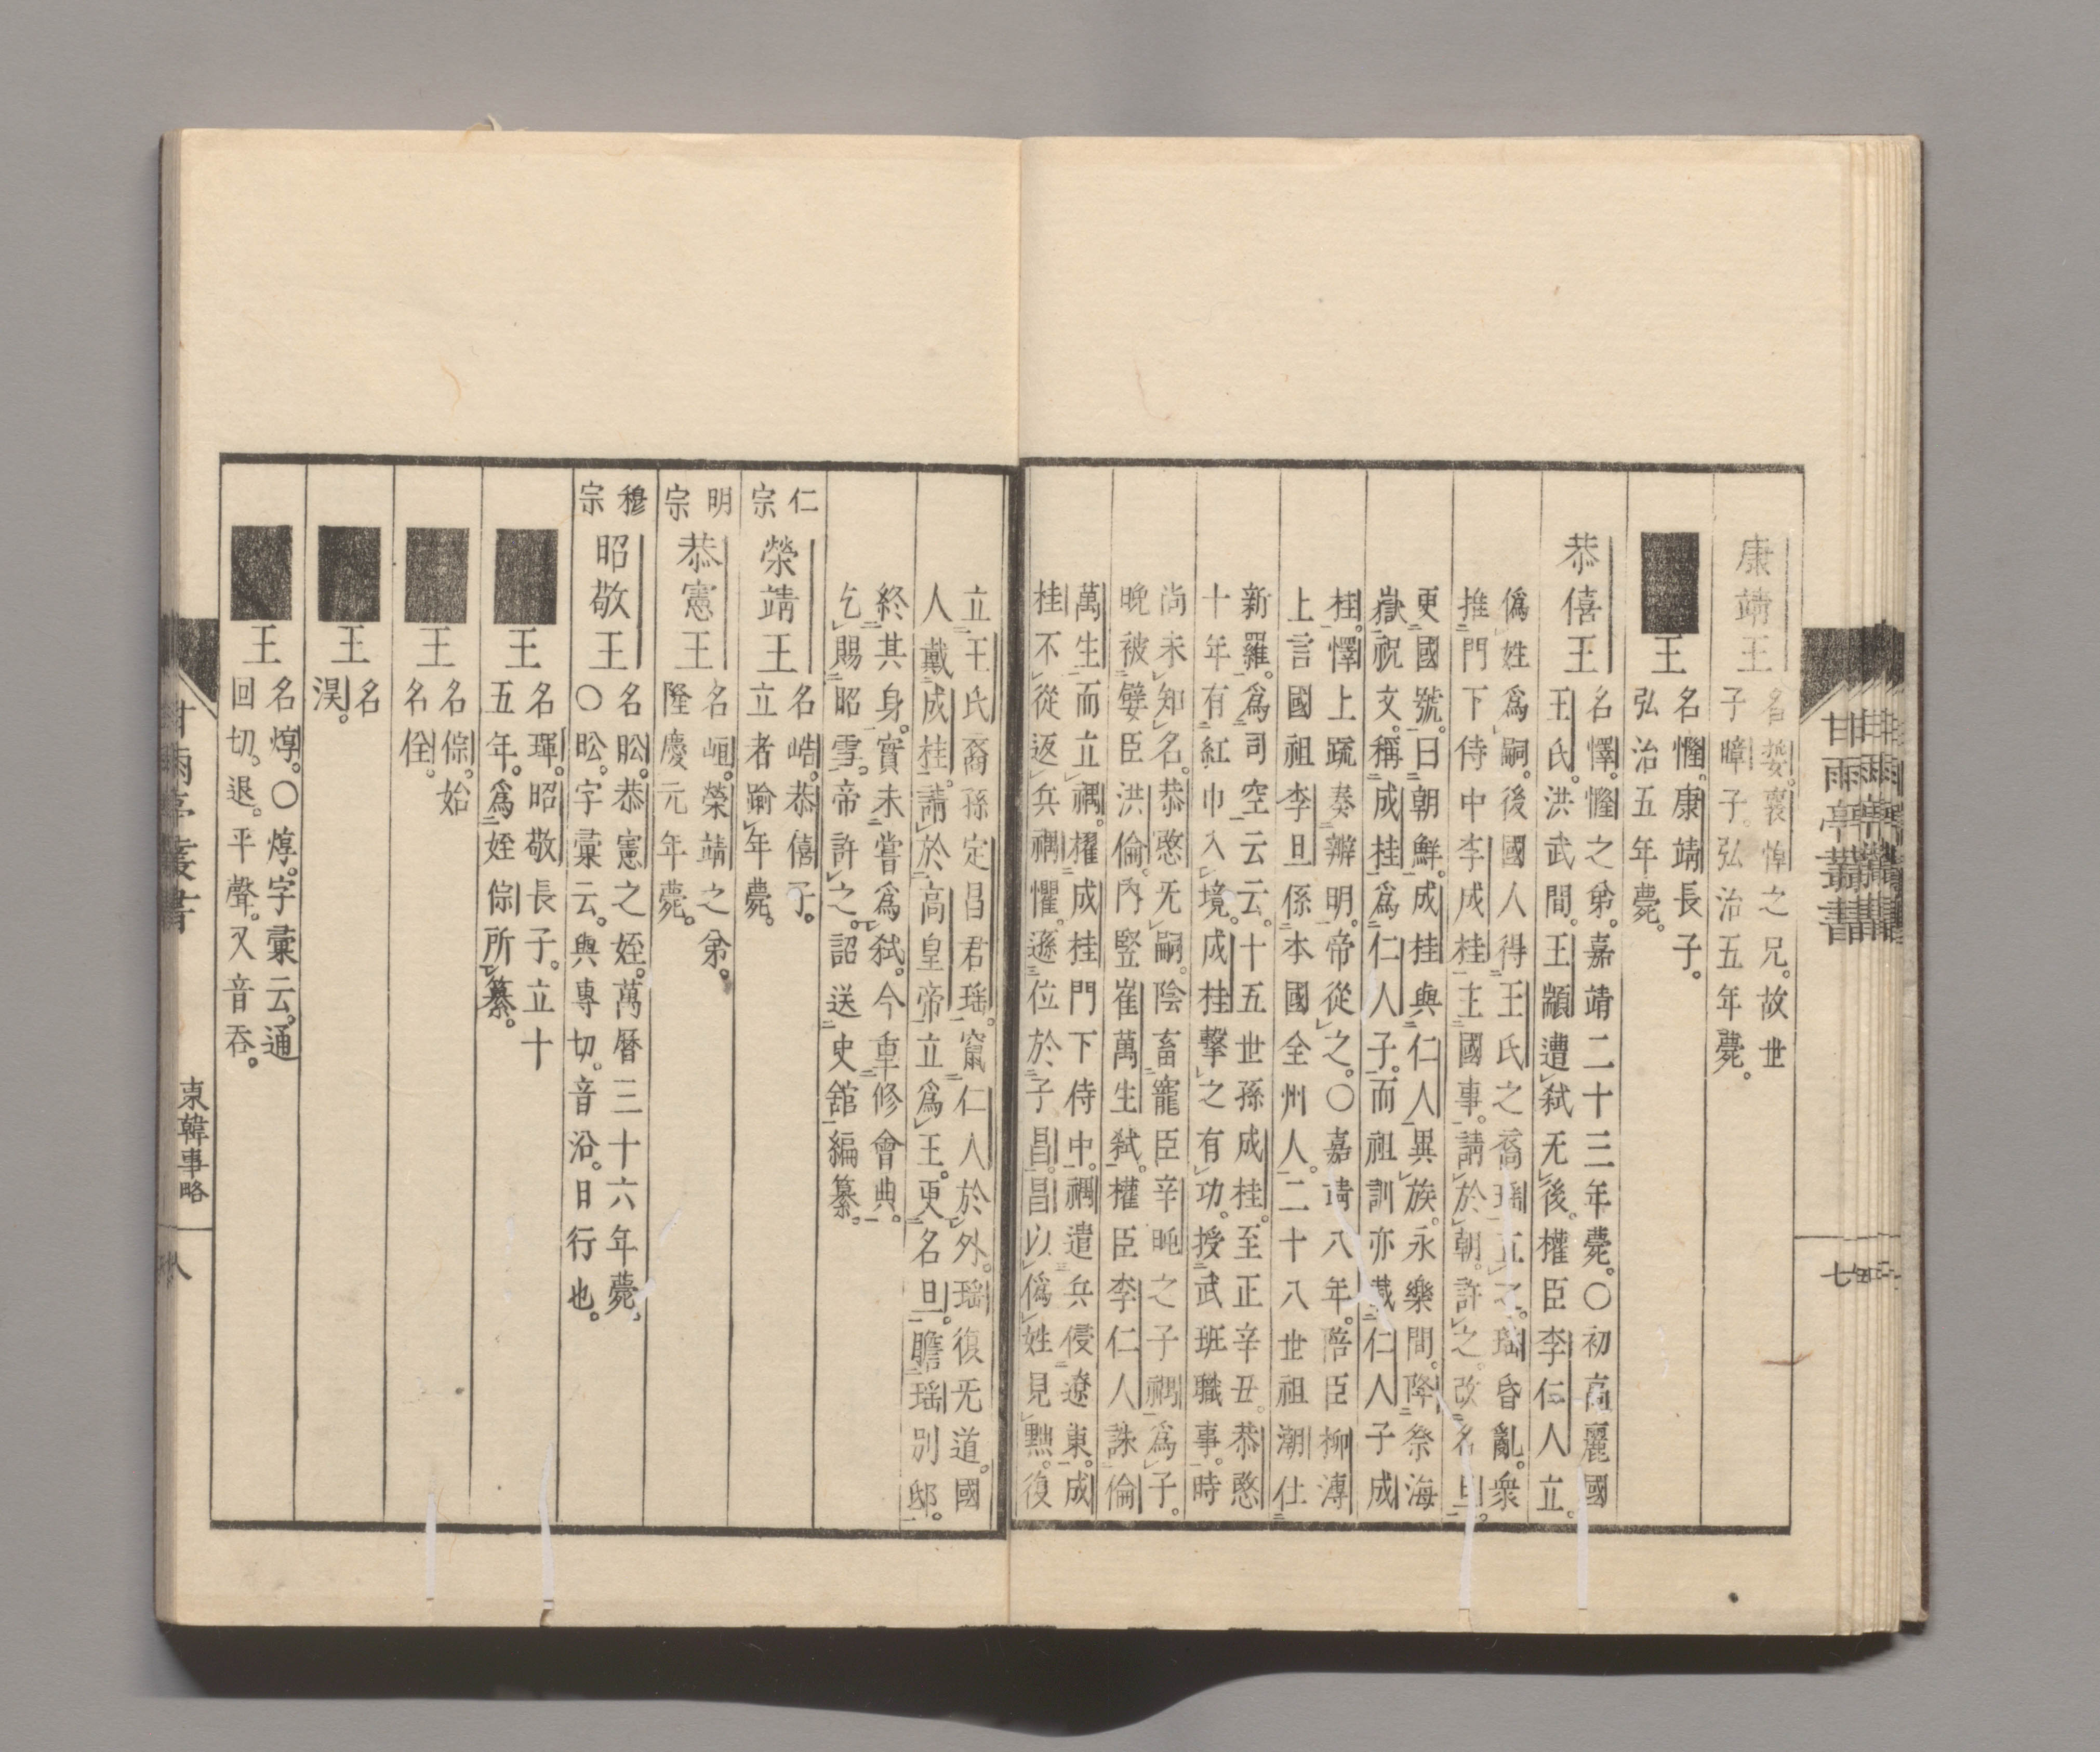 康靖王
名娎。裏悼之兄。故世
子暲子。弘治五年薨。
王
名慳。康靖長子。
弘治五年薨。
恭僖王
名懌。慳之弟。嘉靖二十三年薨。〇初高麗國
王氏。洪武間。王顓遭弑无後。權臣李仁人立。
僞姓爲嗣。後國人得王氏之裔瑶立之。瑶昏亂。衆
推門下侍中李成桂主國事。請於朝。許之。改名旦。
更國號。曰朝鮮。成桂與仁人異族。永樂間。降祭海
嶽祝文。稱成桂爲仁人子。而祖訓亦載仁人子成
桂。懌上䟽奏辨明。帝從之。〇嘉靖八年。陪臣柳溥
上言國祖李旦係本國全州人。二十八世祖瀚仕
新羅。爲司空云云。十五世孫成桂。至正辛丑。恭愍
十年有紅巾入境。成桂擊之有功。授武班職事。時
尚未知名。恭愍无嗣。陰畜寵臣辛旽之子禑爲子。
晚被嬖臣洪倫内竪崔萬生弑。權臣李仁人誅倫
萬生而立禑。擢成桂門下侍中。禑遣兵侵遼東。成
桂不從返兵禑懼。遜位於子昌。昌以僞姓見黜。復
立王氏裔孫定昌君瑶。竄仁人於外。瑶復无道。國
人戴成桂請於高皇帝立爲王。更名旦。贍瑶別邸。
終其身。實未嘗爲弑。今重修會典。
乞賜昭雪。帝許之。詔送史舘編纂。
仁宗
榮靖王
名峼。恭僖子。
立者踰年薨。
明宗
恭憲王
名峘。榮靖之弟。
隆慶元年薨。
穆宗
昭敬王
名昖。恭憲之姪。萬曆三十六年薨。
〇昖。字彙云。與專切。音沿。日行也。
王
名琿。昭敬長子。立十
五年。爲姪倧所纂。
王
名倧。始
名佺。
王
名
淏。
王
名焞。〇焞。字彙云。通
回切。退。平聲。又音吞。
東韓事略
八
甘雨亭叢書
七